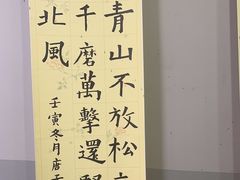 青山不放松
千磨萬擊還
北風
壬寅冬月唐